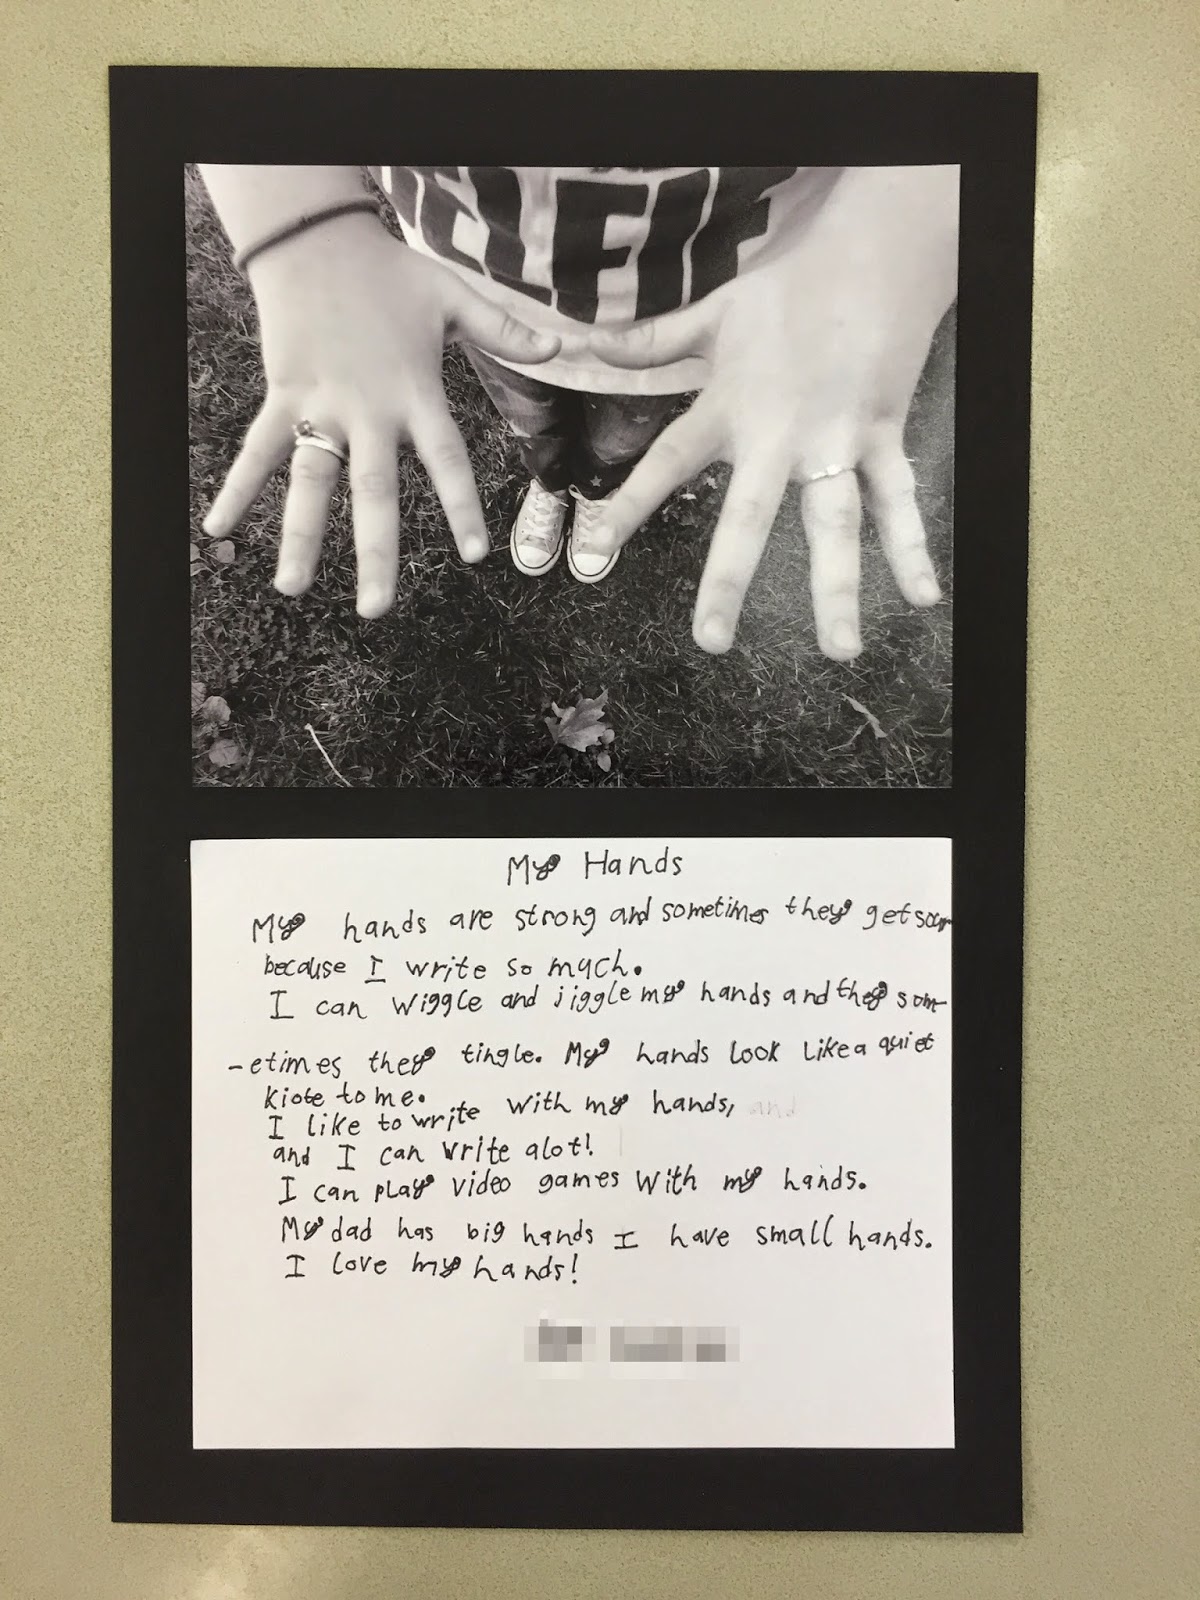 ELFIE
My Hands
My hands are strong and sometimes they get soar
because I write so much.
I can wiggle and jiggle my hands and they som-
-etimes they tingle. My hands look like a quiet
kiote to me.
I like to write with my hands, and
and I can write alot!
I can play video games with my hands.
My dad has big hands I have small hands.
I love my hands!